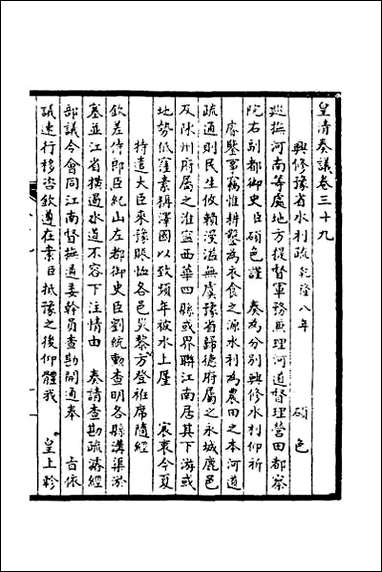 皇清奏議卷三十九
興修豫省水利政乾隆八年 碩色
巡撫河南等處地方提督軍務兼理河道督理營田都察
院右副都御史臣碩色謹 奏為分別興修水利仰祈
睿鑒事竊惟耕鑿為衣食之源水利為農田之本河道
疏通則民生攸賴漫溢無虞豫省歸德府屬之永城鹿邑
及陳州府屬之淮寧西華四縣或界聯江南居其下游或
地勢低窪素稱澤國以致頻年被水上厪 宸衷今夏
特遣大臣來豫賑恤各邑災黎方登袵席隨經
欽差侍郎臣紀山左都御史臣劉統勳查明各縣溝渠泓
塞並江省橫遏水道不容下注情由 奏請查勘疏濬經
部議令會同江南督撫遴委幹員查勘開通奉 旨依
議速行移咨欽遵在案臣抵豫之後仰體我 皇上軫